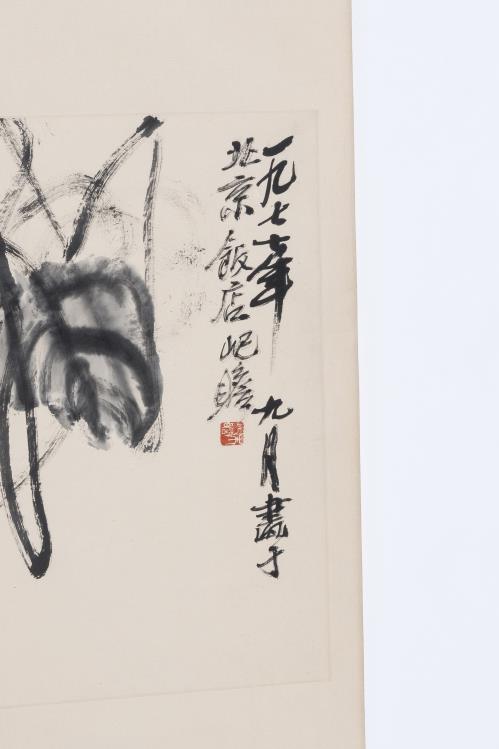 一九七七年九月畫于
北京飯店屺瞻